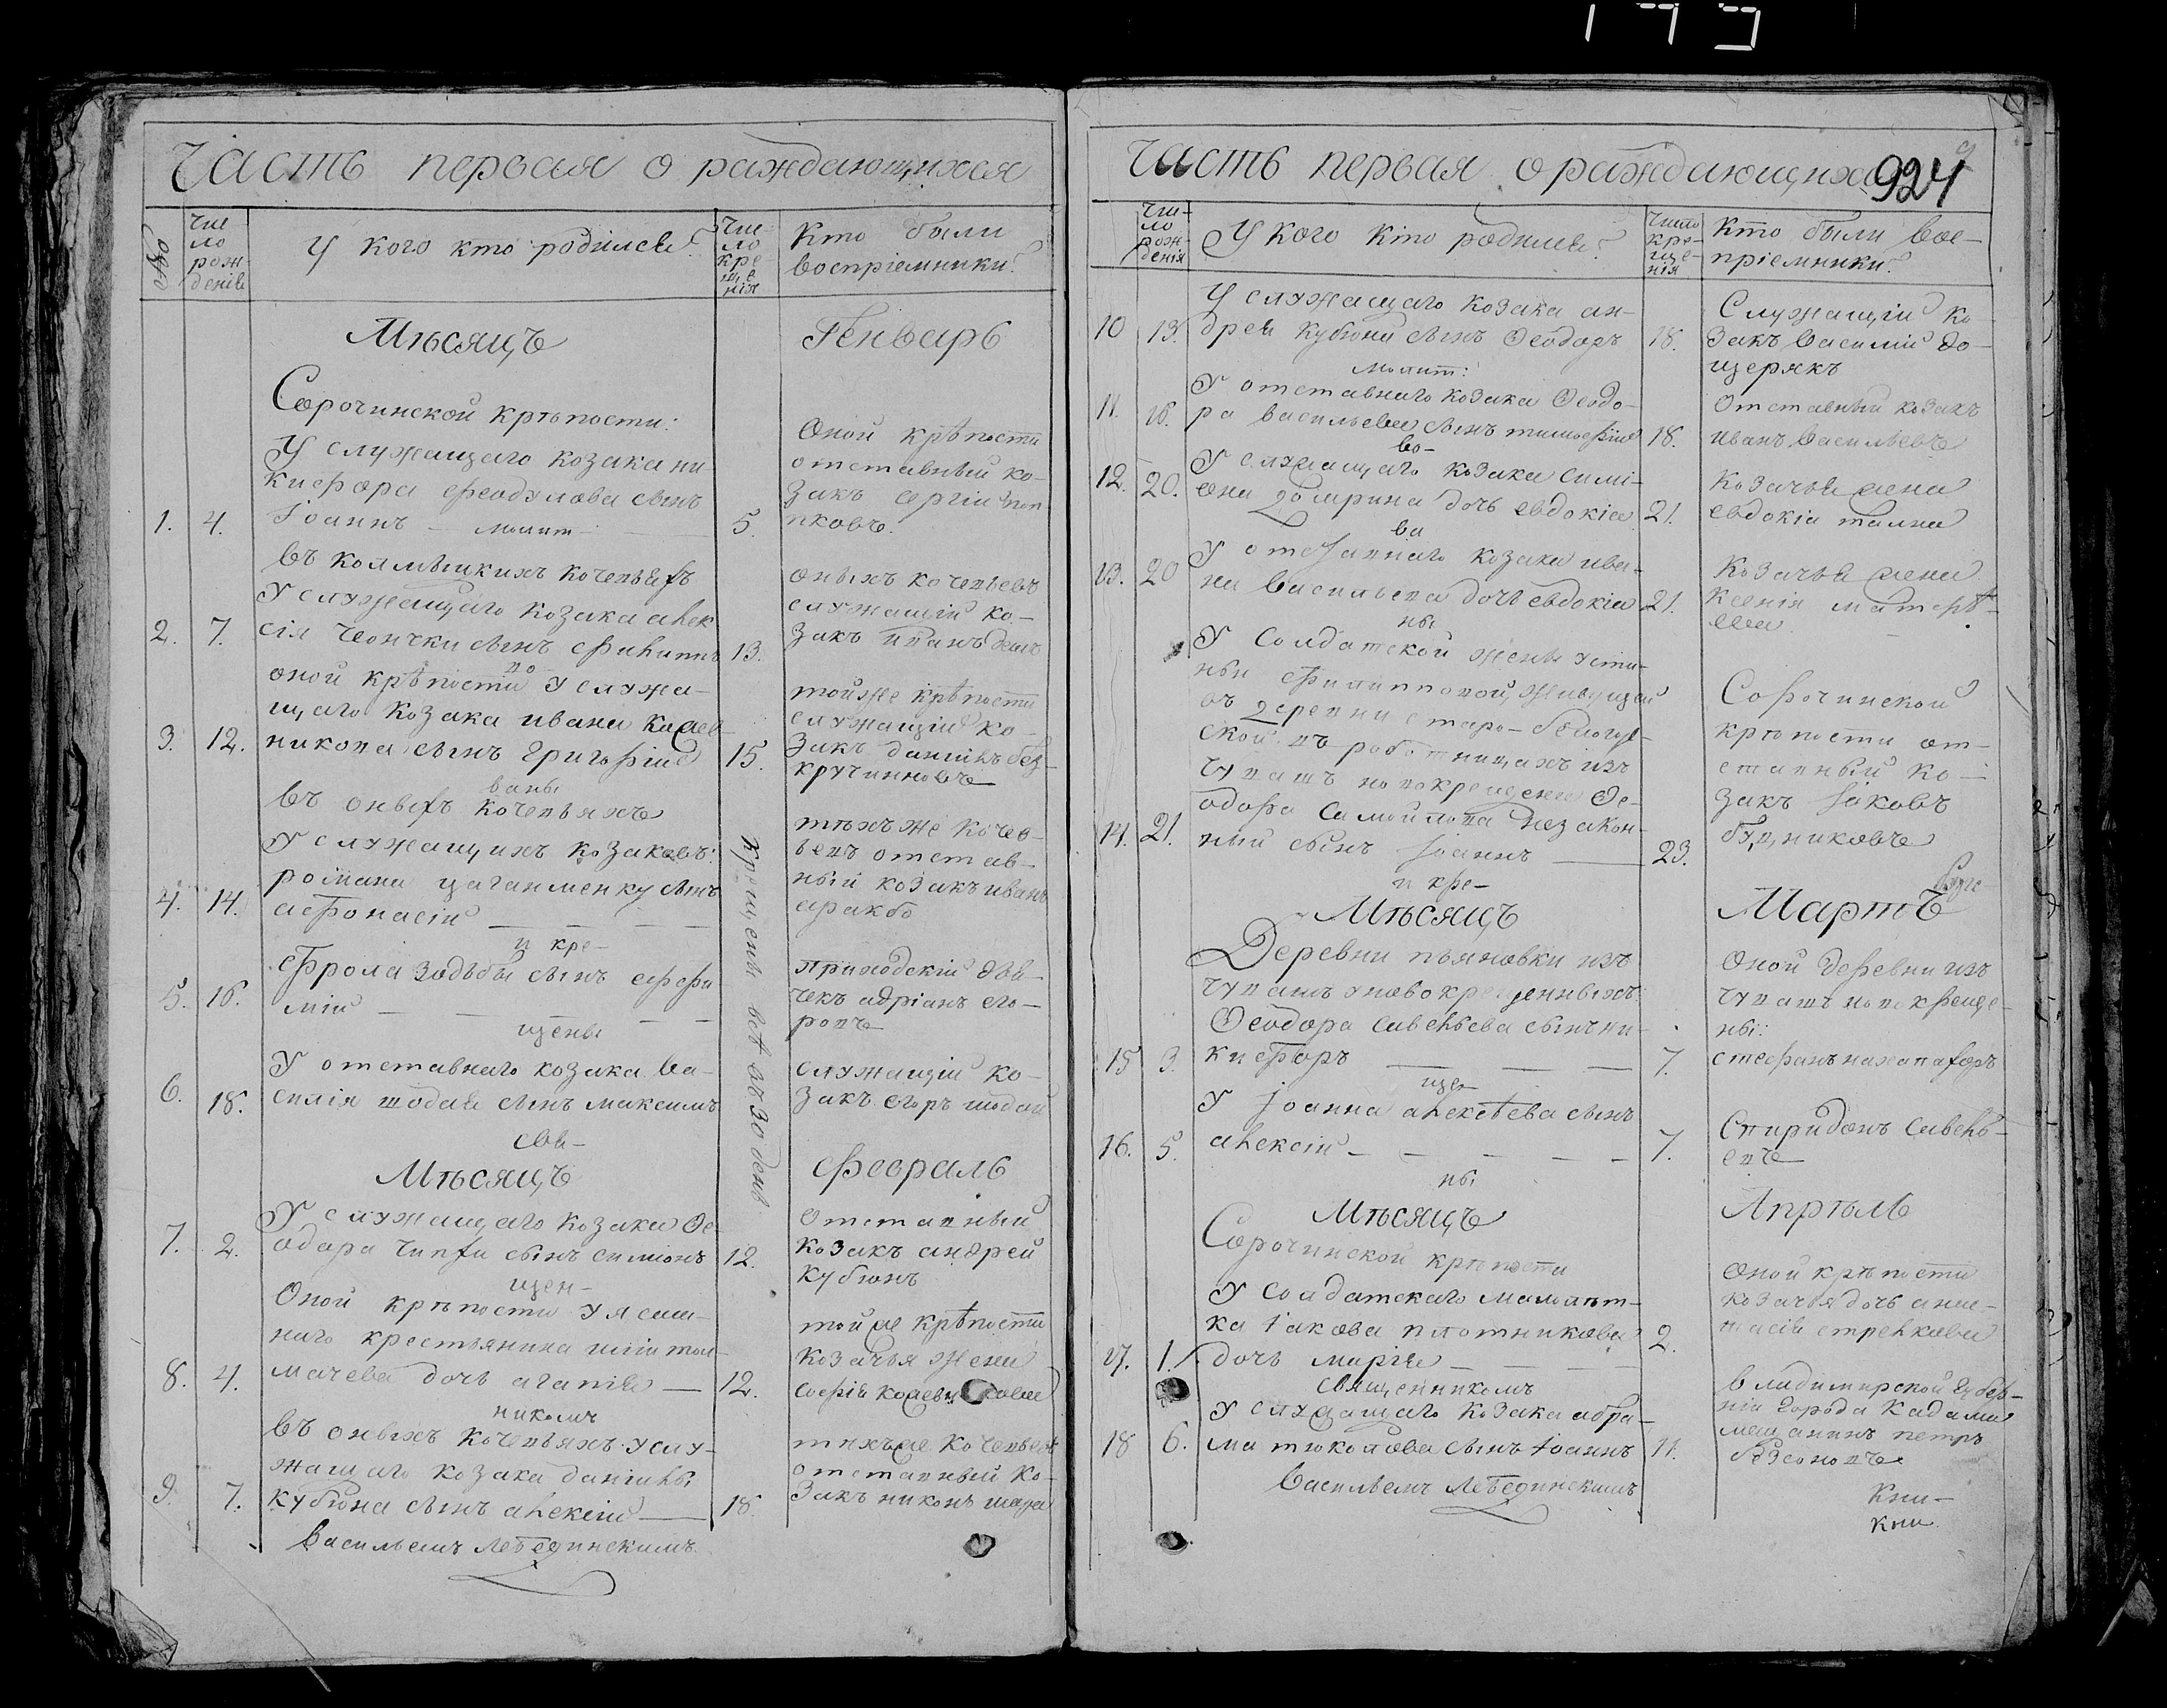 Часть первая о раждающихся
№
Чис
ло
рож
денія
У кого кто родился?
Чис
ло
кре
ще
нія
Кто были
воспріемники?
Мѣсяцъ Генварь
Сорочинской крѣпости:
У служащаго козака ни
кифора феодулова сынъ
1. 4. Іоаннъ — молит — 5.
Оной крѣпости
отставный ко-
закъ сергій поп
пковъ.
Въ колмыцкихъ кочевьяхъ
У служащаго козака алек
2. 7. сія сынъ филиппъ 13.
по
оныхъ кочевьевъ
служащій ко-
закъ иванъ
оной крѣпости У служа-
щаго козака ивана
3. 12. никова сынъ григорій 15.
ваны
тойже крѣпости
служащій ко-
закъ даніилъ без-
кручинновъ
въ оныхъ кочевьяхъ
У служащихъ козаковъ:
романа цаганменку сынъ
4. 14. афонасій — — — —
и кре-
тѣхъ же кочев-
вевъ отстав-
ный козакъ иванъ
аракбо
Фрола задьбы сынъ ефи
5. 16. мій — — — —
щены
приходскій дья-
чекъ адріанъ его-
ровъ
У отставнаго козака ва-
6. 18. силія шодай сынъ максимъ
свя-
служащій ко-
закъ егоръ шодай
крещены всѣ въ 30 день
Мѣсяцъ февраль
У служащаго козака Ѳе
7. 2. одора сынъ симіонъ 12.
щен-
Отставный
козакъ андрей
кубюнъ
Оной крѣпости У ясаш-
наго крестьянина иліи тол-
8. 4. мачева дочь агапія — 12.
никомъ
тойже крѣпости
козачья жена
софія
въ оныхъ кочевьяхъ У слу-
жащаго козака даніилы
9. 7. кубюна сынъ алексій — 18.
тѣхъже кочевьевъ
отставный ко-
закъ никонъ шара
Васильемъ Лебединскимъ
Часть первая о раждающихся
924
Чи-
ло
рож-
денія
У кого кто родился?
Число
кре-
ще-
нія
Кто были вос-
пріемники?
У служащаго козака ан-
10 13. дрея кубюни сынъ Ѳеодоръ 18.
молит:
Служащій ко
закъ василій до-
щерякъ
У отставнаго козака Ѳеодо-
11. 16. ра васильева сынъ тимофій 18.
во-
Отставный козакъ
иванъ васильевъ
У служащаго козака симі-
12. 20. она домрина дочь евдокіа 21.
ва
Козачья жена
евдокіа
У отставнаго козака ива-
13. 20 на васильева дочь евдокіа 21.
ны
Козачья жена
ксенія
У солдатской жены усти-
ньи филипповой, живущей
въ деревни старо-
ской въ работницахъ изъ
чувашъ новокрещена Ѳе-
одора самойлова незакон-
14. 21. ный сынъ Іоаннъ — 23.
и кре-
Сорочинской
крѣпости от-
ставный ко-
закъ Іаковъ
Мѣсяцъ Мартъ
Деревни пьяновки изъ
чувашъ У новокрещенныхъ
Ѳеодора савельева сынъ ни-
15 3. кифоръ — — — 7.
щен-
Оной деревни изъ
чувашъ новокреще-
ны:
стефанъ
У Іоанна алексѣева сынъ
16. 5. алексій — — — — — 7.
ны
Спиридонъ савель-
евъ
Мѣсяцъ Апрѣль
Сорочинской крѣпости
У солдатскаго малолѣт-
ка Іакова плотникова 2.
17. 1. дочь марія — — —
священникомъ
оной крѣпости
козачья дочь ана-
стасія стрелкова
У служащаго козака абра-
18 6. ма тюколова сынъ Іоаннъ 11.
Владимирской губер-
ніи города кадама
мещанинъ петръ
Васильемъ Лебединскимъ
Кни-
кни